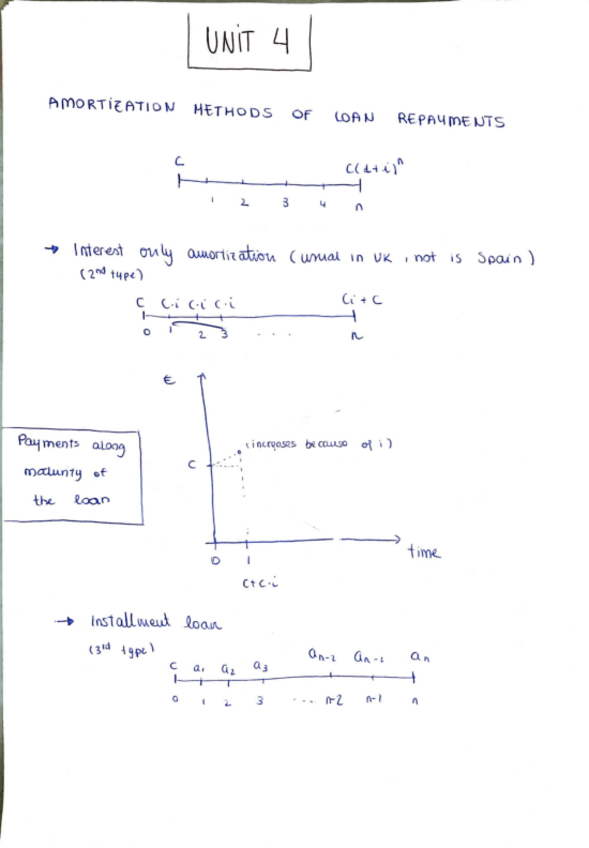 UNIT 4
AMORTIZATION METHODS OF LOAN REPAYMENTS
C C(1+i)^n
1 2 3 4 n
→ Interest only amortization (usual in UK, not is Spain)
(2nd type)
C C·i C·i C·i Ci + C
0 1 2 3 ... n
€
(increases because of i)
C
Payments along
maturity of
the loan
time
0 1
C+C·i
→ Installment loan
(3rd type)
C a₁ a₂ a₃ aₙ₋₂ aₙ₋₁ aₙ
0 1 2 3 ... n-2 n-1 n